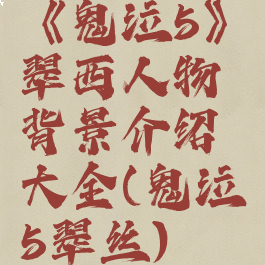 《鬼泣5》
翠西人物
背景介绍
大全(鬼泣
5翠丝)